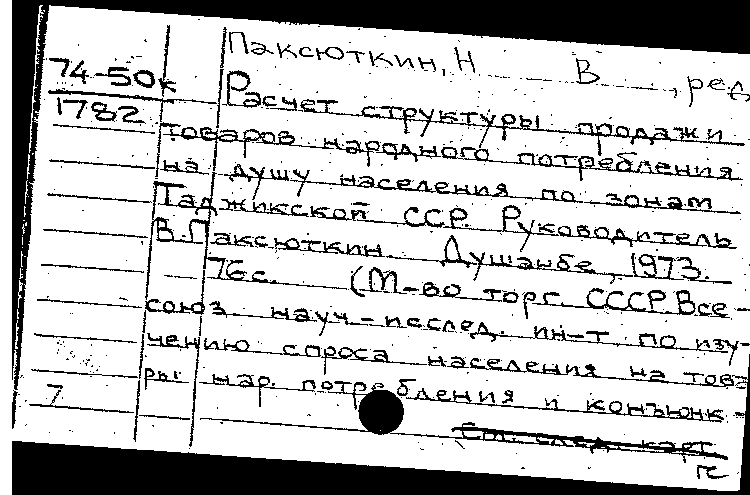 Паксюткин, Н В , ред.
74-50к
1782
Расчет структуры продажи
товаров народного потребления
на душу населения по зонам
Таджикской ССР. Руководитель
В. Паксюткин. Душанбе, 1973.
76 с. (М-во торг. СССР. Все-
союз. науч.-исслед. ин-т по изу-
чению спроса населения на това
ры нар. потребления и конъюнк-
7
См. след. карт.